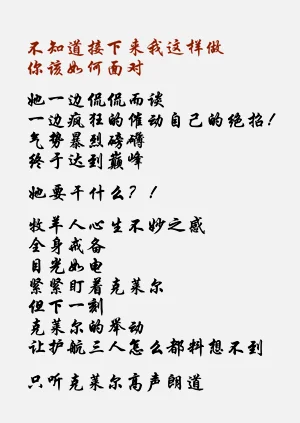 不知道接下来我这样做
你该如何面对
她一边侃侃而谈
一边疯狂的催动自己的绝招！
气势暴烈磅礴
终于达到巅峰
她要干什么？！
牧羊人心生不妙之感
全身戒备
目光如电
紧紧盯着克莱尔
但下一刻
克莱尔的举动
让护航三人怎么都料想不到
只听克莱尔高声朗道